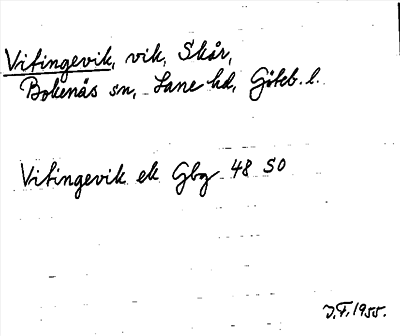 Vitingevik, vik, Skår,
Bokenäs sn, Lane hd, Göteb. l.
Vitingevik ek Gbg 48 SO
J.F. 1955.